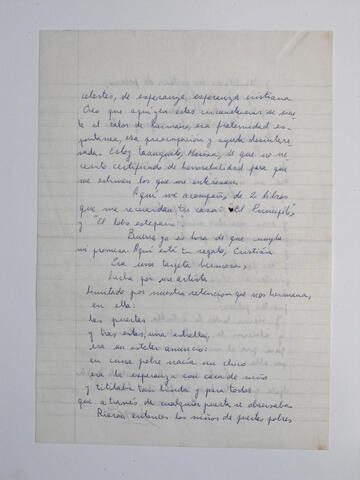 celestes, de esperanza, esperanza cristiana
Creo que aquí en estas circunstancias se sien-
te el calor de hermano, esa fraternidad es-
pontánea, esa preocupación y ayuda desintere-
sada. Estoy tranquilo, de que no ne-
cesito certificado de honorabilidad para que
me estimen los que me interesan.
Aquí me acompañan 2 libros
que me recuerdan tu casa: "El Principito"
y "El lobo estepario".
Bueno ya es hora de que cumpla
mi promesa. Aquí está tu regalo, Cristián
Era una tarjeta hermosa,
hecha por un artista
limitado por nuestra retención que nos hermana,
en ella:
las puertas
y tras estas, una estrella,
era un estelar anuncio:
en cuna pobre nacía un chico
era la esperanza con cara de niño
y titilaba tan linda y para todos
que a través de cualquier puerta se observaba.
Rieron entonces los niños de puertas pobres